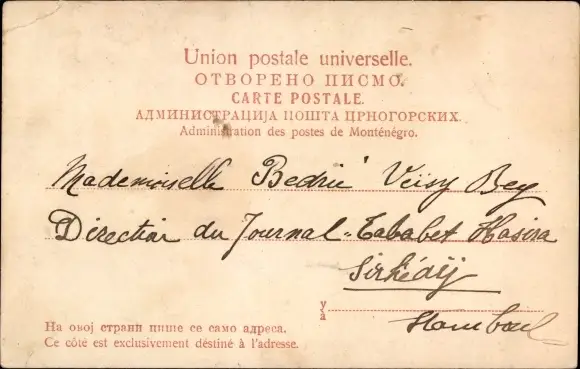 Union postale universelle.
ОТВОРЕНО ПИСМО.
CARTE POSTALE.
АДМИНИСТРАЦИЈА ПОШТА ЦРНОГОРСКИХ.
Administration des postes de Monténégro.
Mademoiselle Bedrié Veisy Bey
Direction du Journal "Tababet Hasira
Sirkédij
У
à
Stamboul
На овој страни пише се само адреса.
Ce côté est exclusivement destiné à l'adresse.